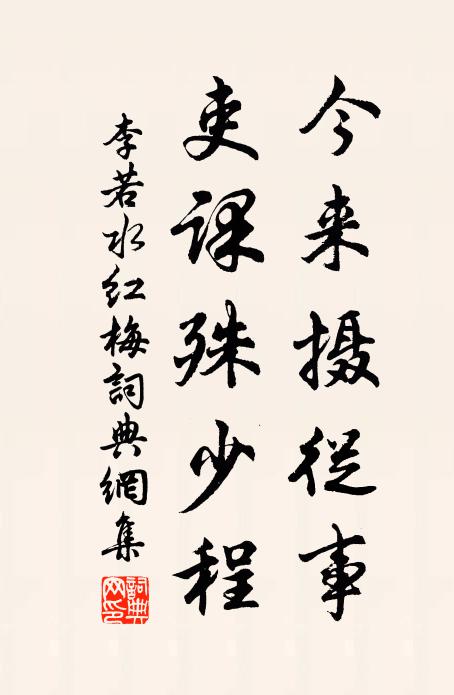 今来摄従事
吏课殊少程
李若水红梅詞典網集
詞典网印